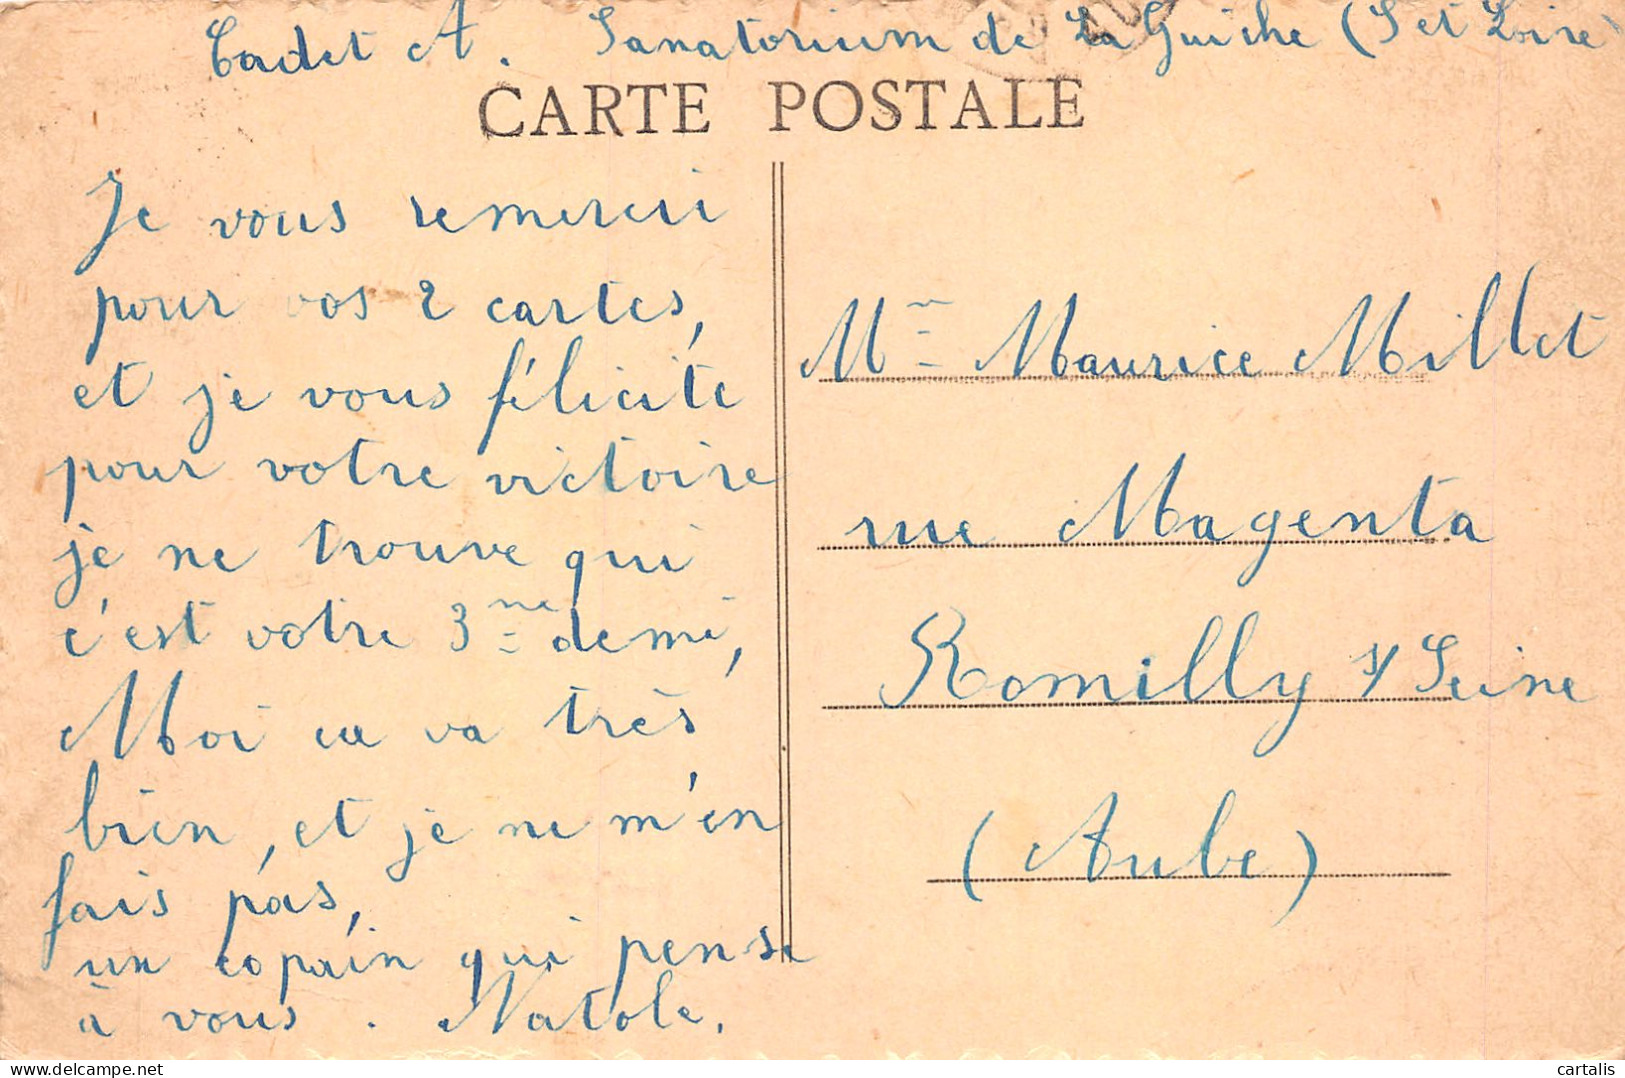 Cadet A. Sanatorium de La Guiche (S et Loire)
CARTE POSTALE
Je vous remercii
pour vos 2 cartes,
et je vous félicite
pour votre victoire
je ne trouve qui
c'est votre 3me demi,
Moi ca va très
bien, et je ne m'en
fais pas,
un copain qui pense
à vous. Natole.
Mr Maurice Millet
rue Magenta
Romilly s/ Seine
(Aube)
cartalis